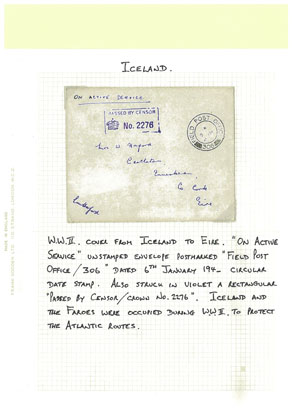 ICELAND.
ON ACTIVE SERVICE
PASSED BY CENSOR
No. 2276
FIELD POST OFFICE
306
Castletown
Co Cork
Eire
W.W.II. COVER FROM ICELAND TO EIRE. "ON ACTIVE
SERVICE" UNSTAMPED ENVELOPE POSTMARKED "FIELD POST
OFFICE/306" DATED 6TH JANUARY 194_ CIRCULAR
DATE STAMP. ALSO STRUCK IN VIOLET A RECTANGULAR
"PASSED BY CENSOR/CROWN NO. 2276". ICELAND AND
THE FAROES WERE OCCUPIED DURING W.W.II. TO PROTECT
THE ATLANTIC ROUTES.